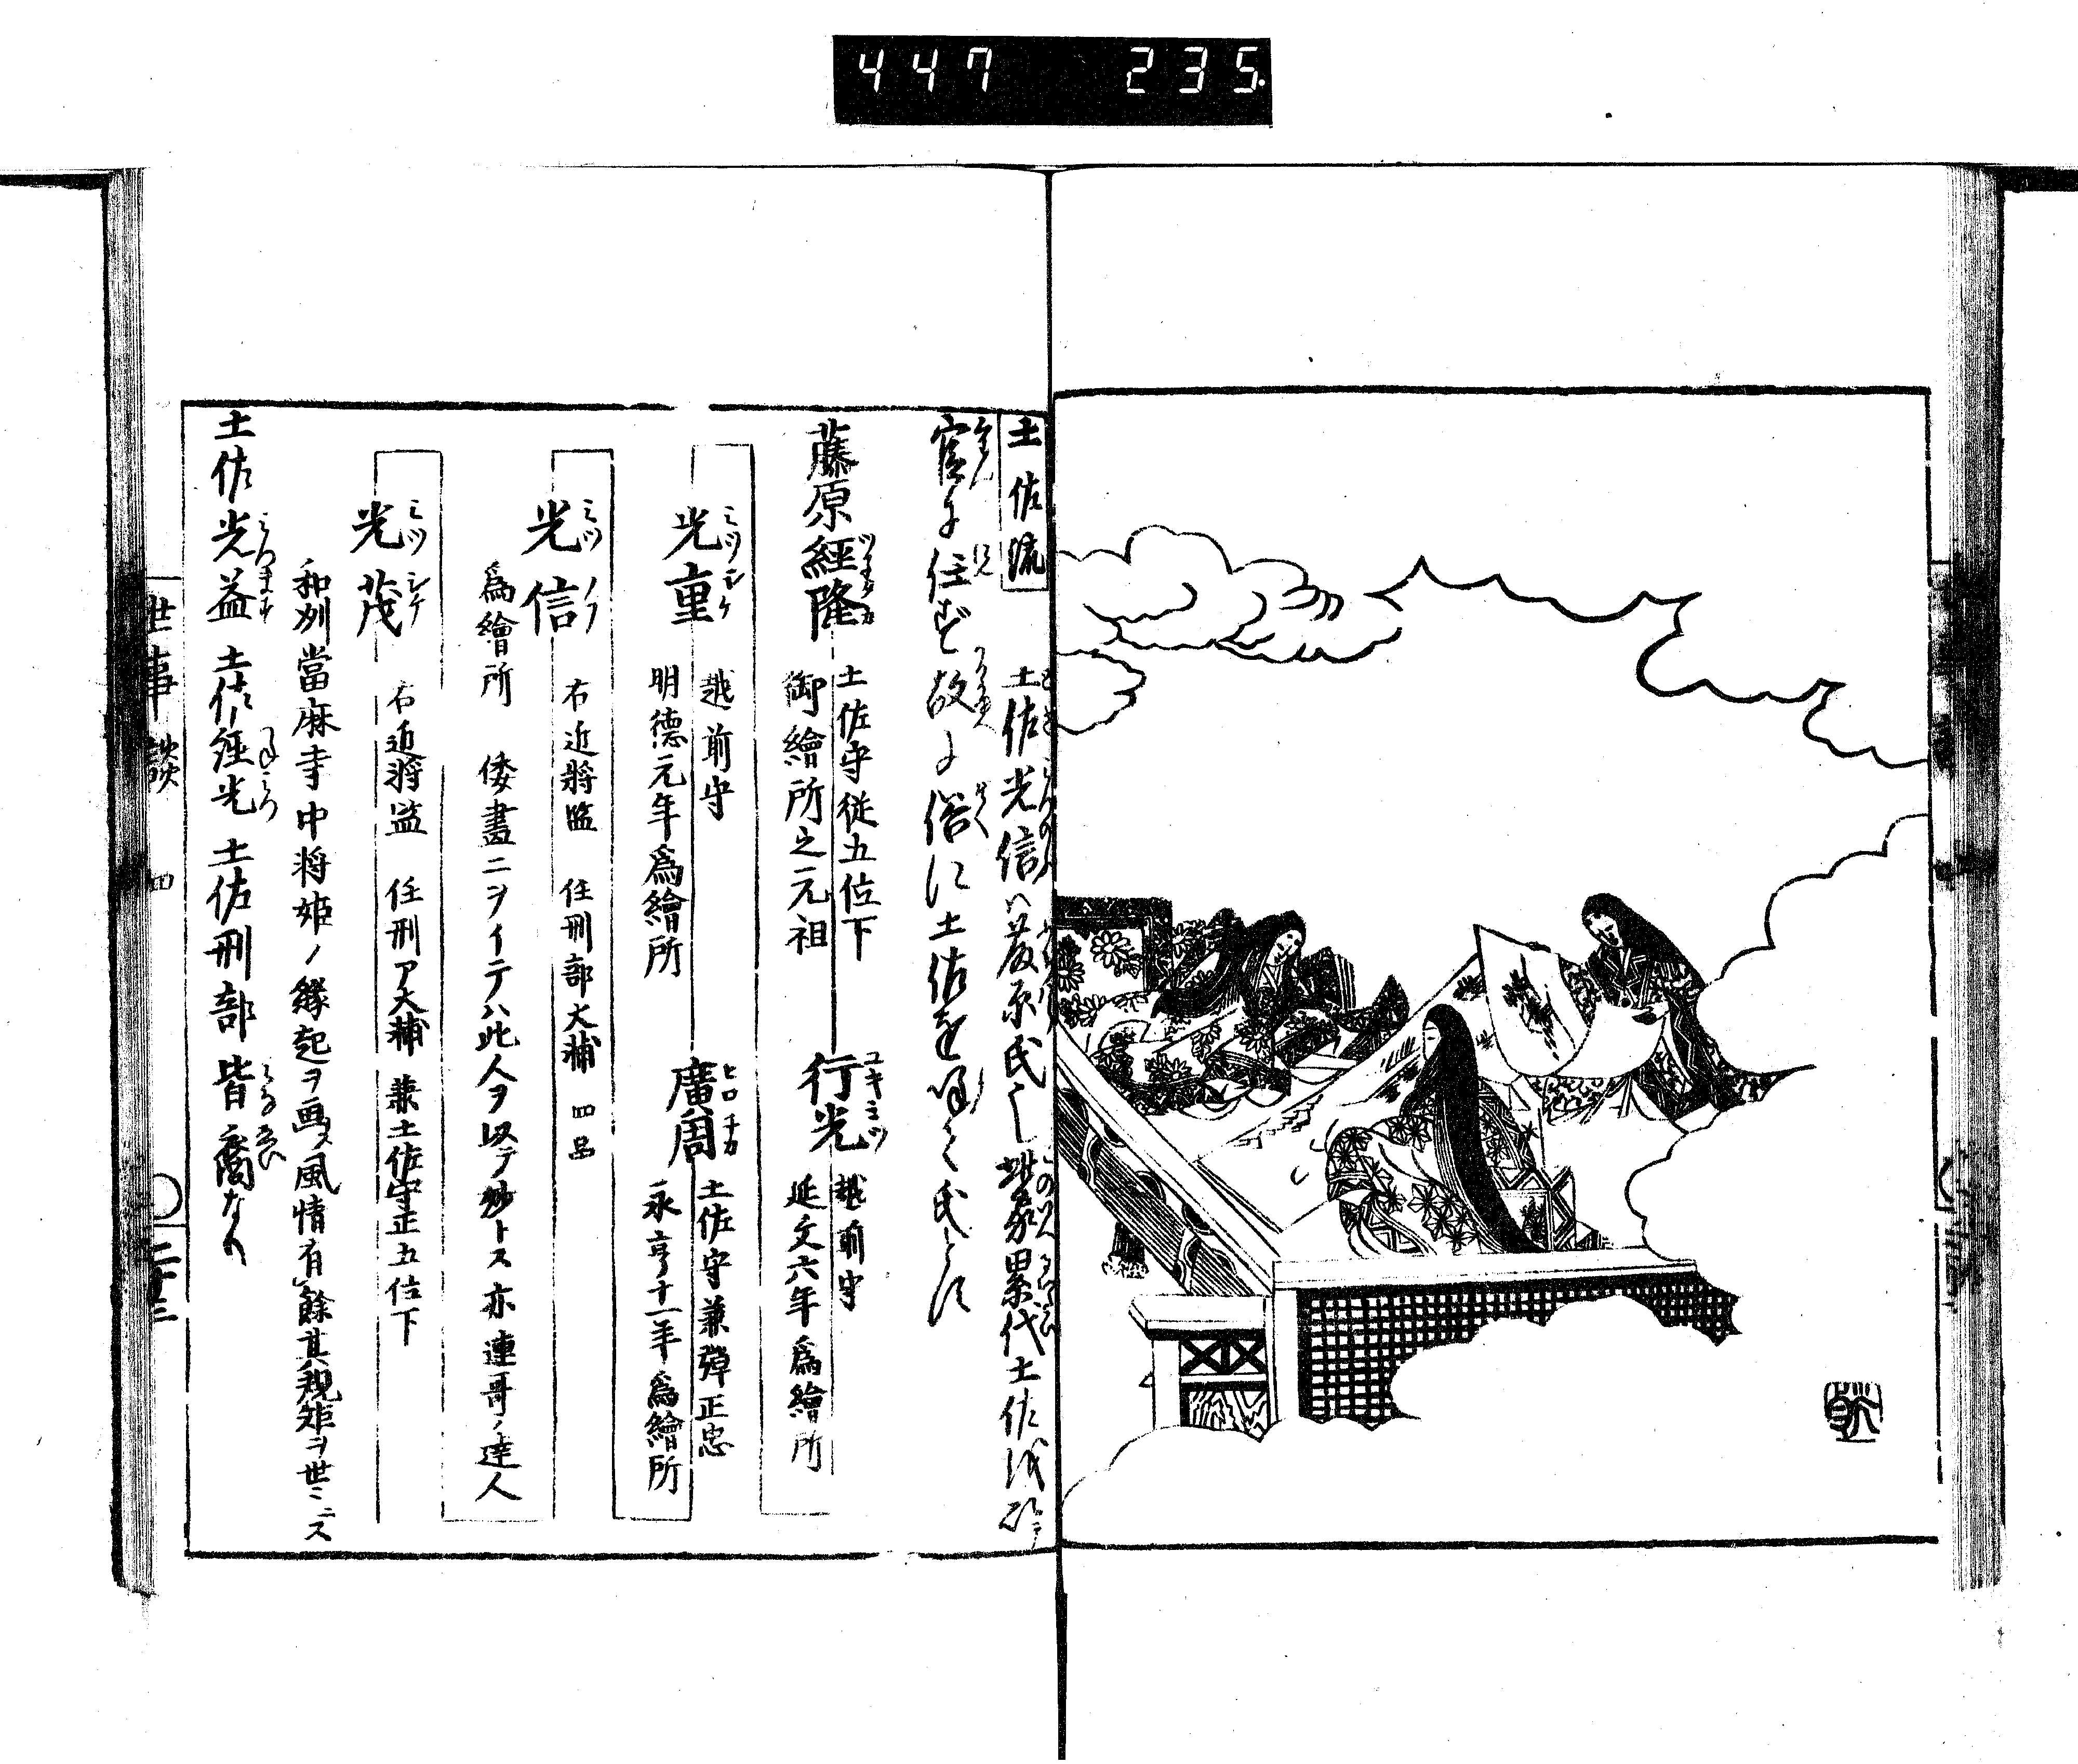 447 235
土佐流
土佐光信ハ藤原氏也此家累代土佐
官に任ず故に俗に土佐を
藤原經隆 土佐守従五位下
御繪所之元祖
行光 越前守
延文六年爲繪所
光重 越前守
明徳元年爲繪所
廣周 土佐守兼弾正忠
永享十一年爲繪所
光信 右近将監 任刑部大輔 四品
爲繪所 倭畫ニヲイテハ此人ヲ以テ妙トス亦連哥ノ達人
光茂 右近将監 任刑ア大輔 兼土佐守正五位下
和刕當麻寺中将姫ノ縁起ヲ画ス風情有餘其規矩ヲ世ニ
土佐光益 土佐経光 土佐刑部 皆裔なり
世事談 四
二十三